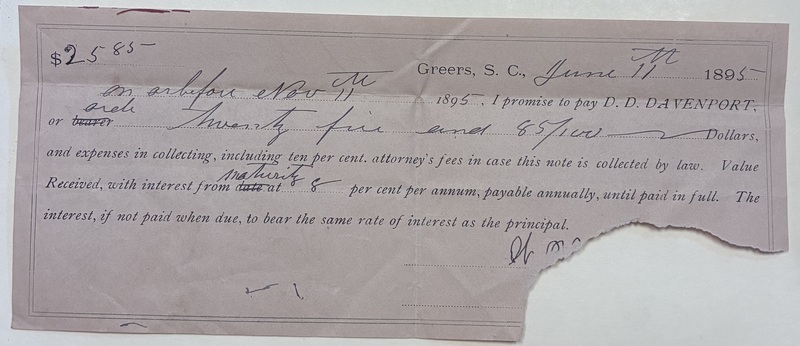 $25 85
Greers, S. C., June 11th 1895
on or before Nov 11th 1895, I promise to pay D. D. DAVENPORT,
orde
or bearer twenty five and 85/100 Dollars,
and expenses in collecting, including ten per cent. attorney's fees in case this note is collected by law. Value
maturity
Received, with interest from date at 8 per cent per annum, payable annually, until paid in full. The
interest, if not paid when due, to bear the same rate of interest as the principal.